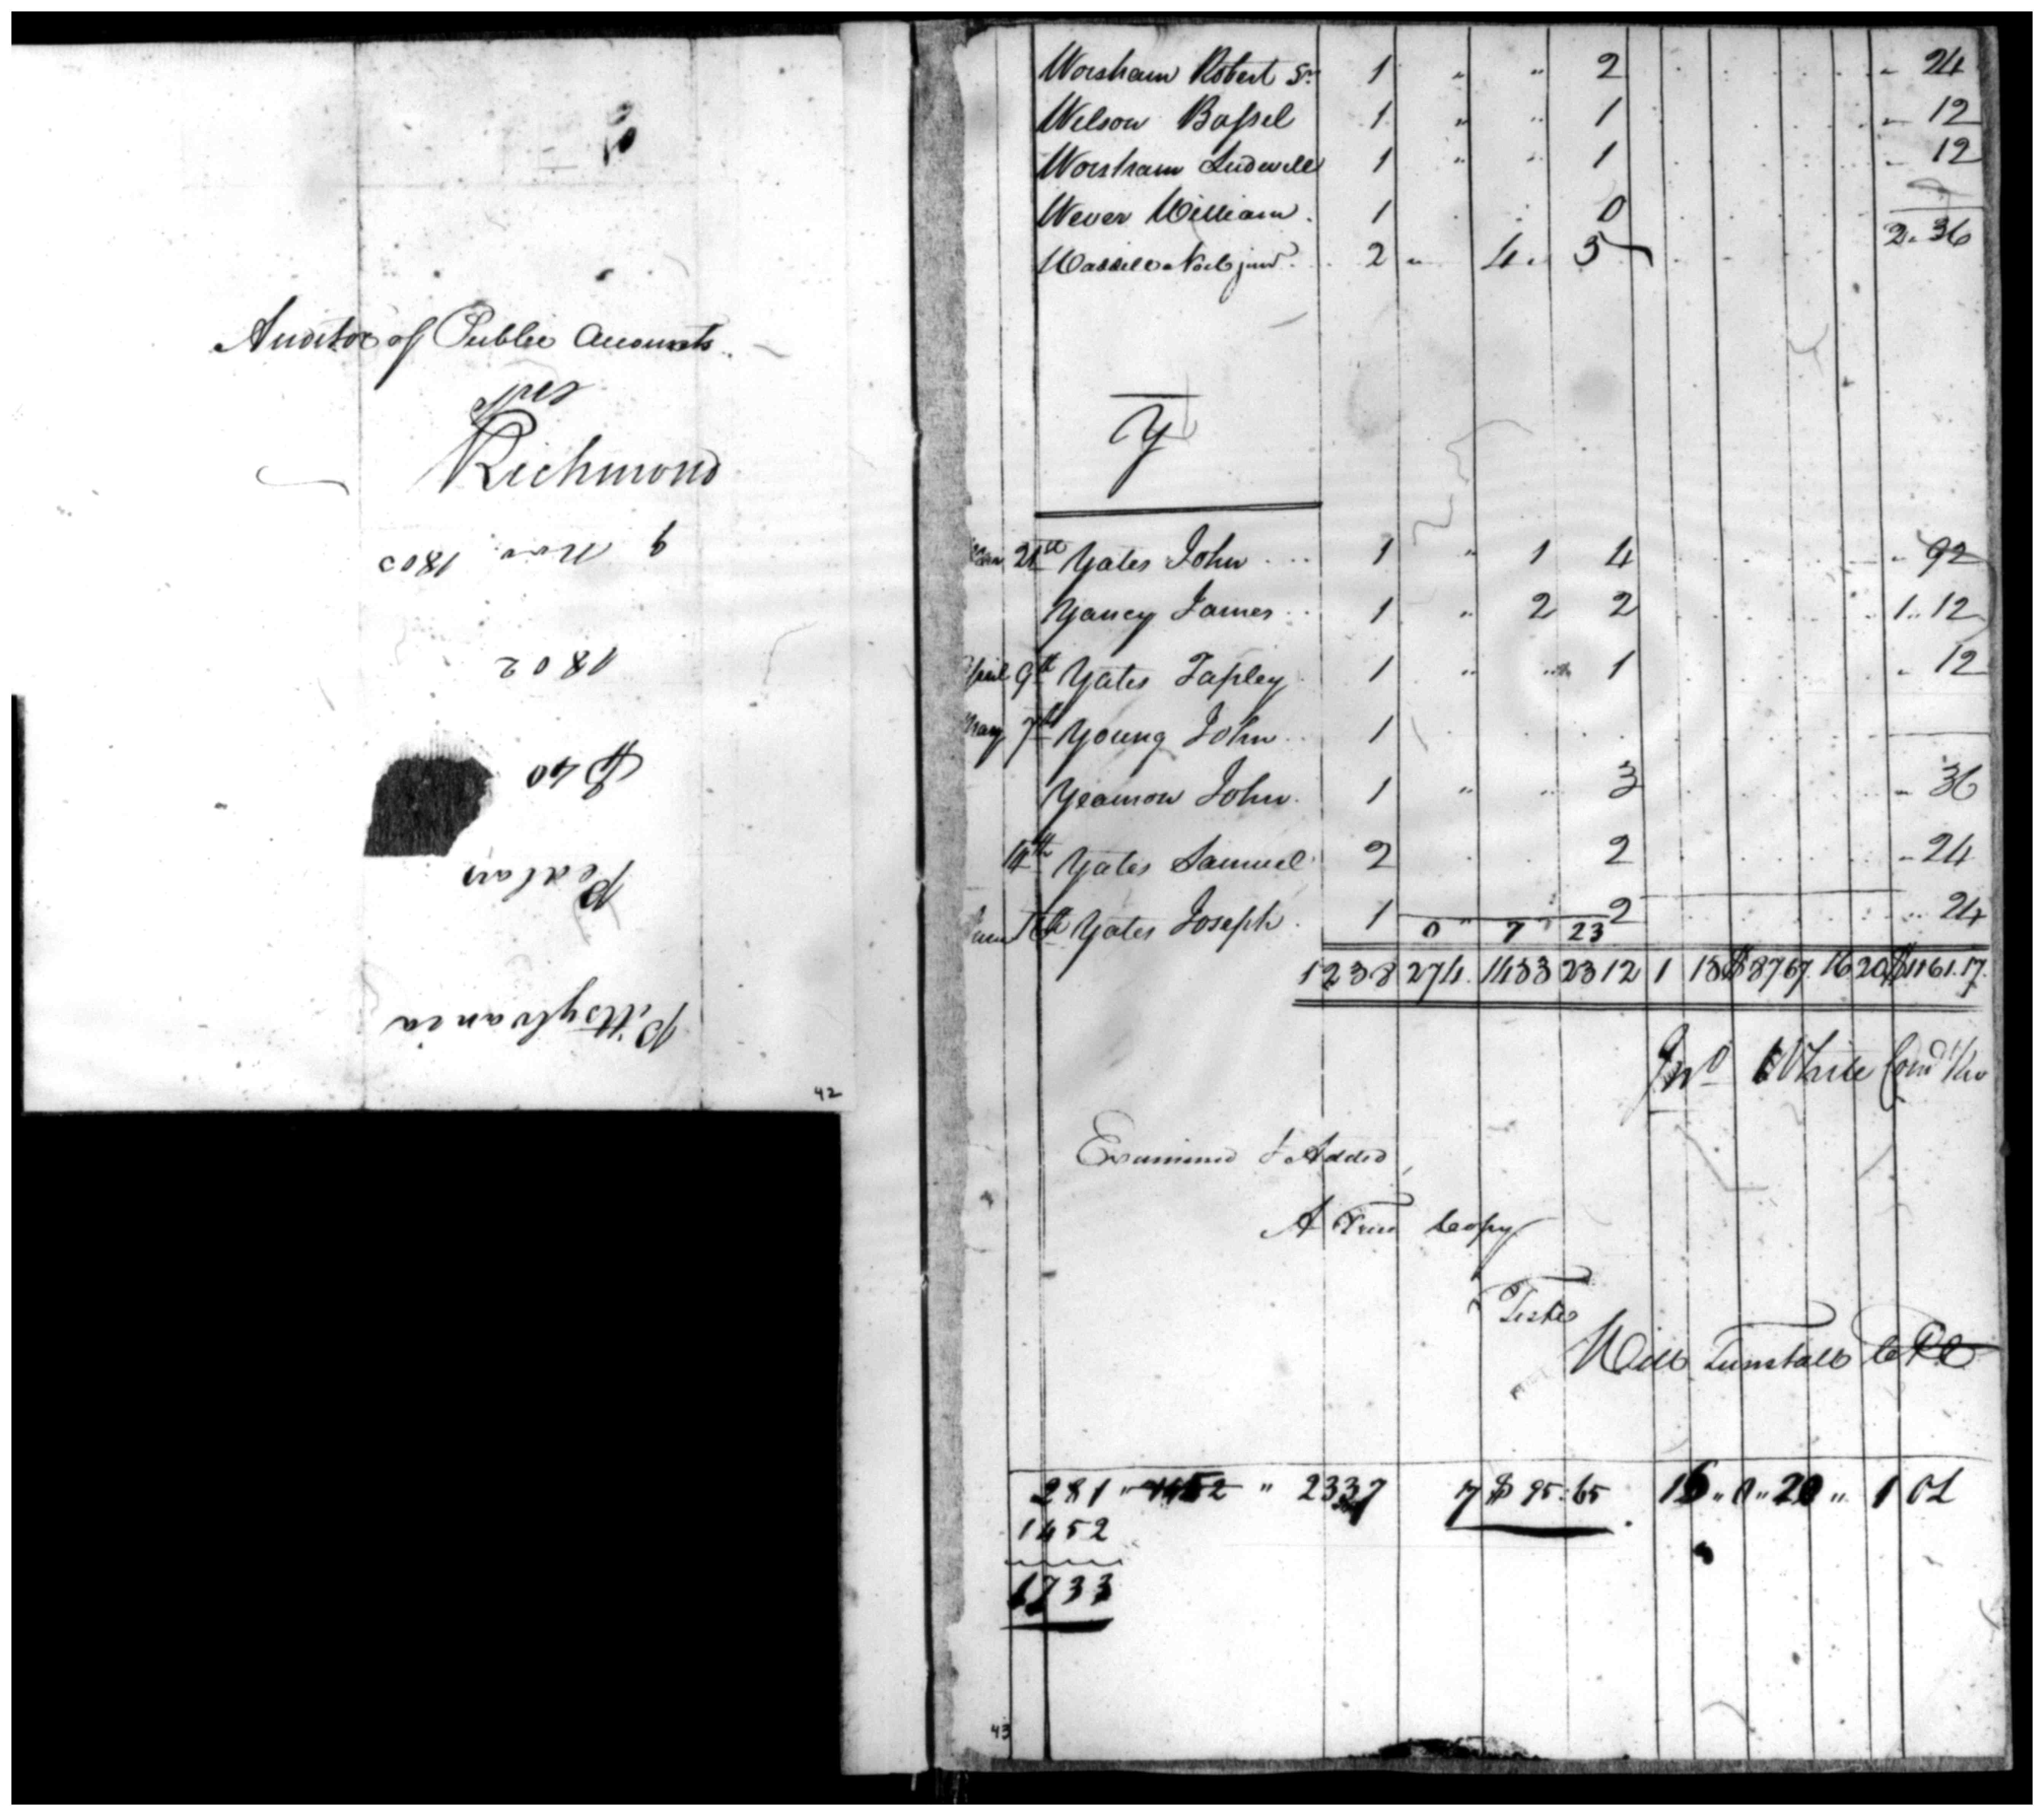 Auditor of Public Accounts
Richmond
9 Nov. 1803
1802
$40
Pedlar
Pittsylvania
42
Worsham Robert Sr. 1 " " 2 " 24
Wilson Bassel 1 " " 1 " 12
Worsham Ludwell 1 " " 1 " 12
Wever William. 1 0
Waddill Noel junr. 2 " 4 " 5 2 " 36
Y
21st Yates John 1 " 1 4 " 92
Yancy James 1 " 2 2 1 " 12
April 9th Yates Tapley 1 " " 1 " 12
May 7th Young John 1
Yeamon John 1 " " 3 " 36
14th Yates Samuel 2 2 " 24
16th Yates Joseph 1 2 " 24
0 " 7 " 23
1238 274. 1453 2312 1 15 $87 67. 16 20 $1161.17.
Jno. White
Examined & Added
A True Copy
Teste
Will Tunstall
281 " 1452 " 2337 7 $95.65 16 " 0 " 20 " 1
1452
1733
43